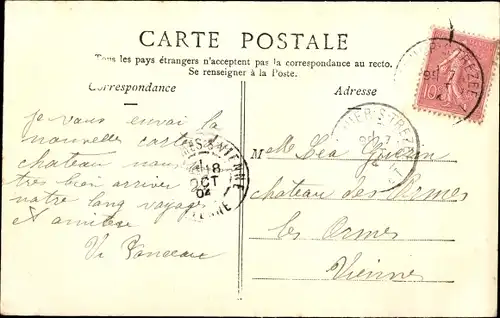 CARTE POSTALE
Tous les pays étrangers n'acceptent pas la correspondance au recto.
Se renseigner à la Poste.
Correspondance
Adresse
je vous envoi la
nouvelle carte
château nous
très bien arriver
notre long voyage
et amitiée
M elle Léa Guérin
château des Ormes
les Ormes
Vienne
18
OCT
04
10